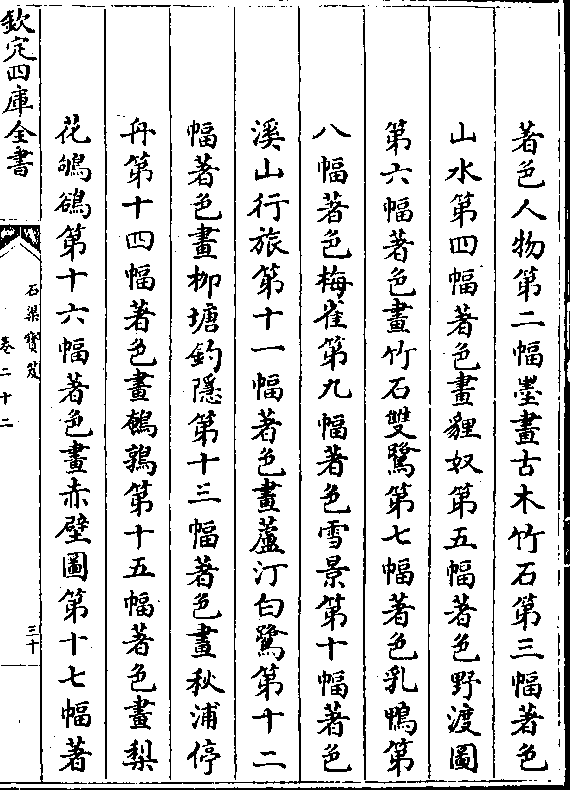 著色人物第二幅墨畫古木竹石第三幅著色
山水第四幅著色畫貍奴第五幅著色野渡圖
第六幅著色畫竹石雙鷺第七幅著色乳鴨第
八幅著色梅雀第九幅著色雪景第十幅著色
溪山行旅第十一幅著色畫蘆汀白鷺第十二
幅著色畫柳塘釣隱第十三幅著色畫秋浦停
舟第十四幅著色畫鵪鶉第十五幅著色畫梨
花鴝鵒第十六幅著色畫赤壁圖第十七幅著
欽定四庫全書
石渠寶笈
卷二十二
三十